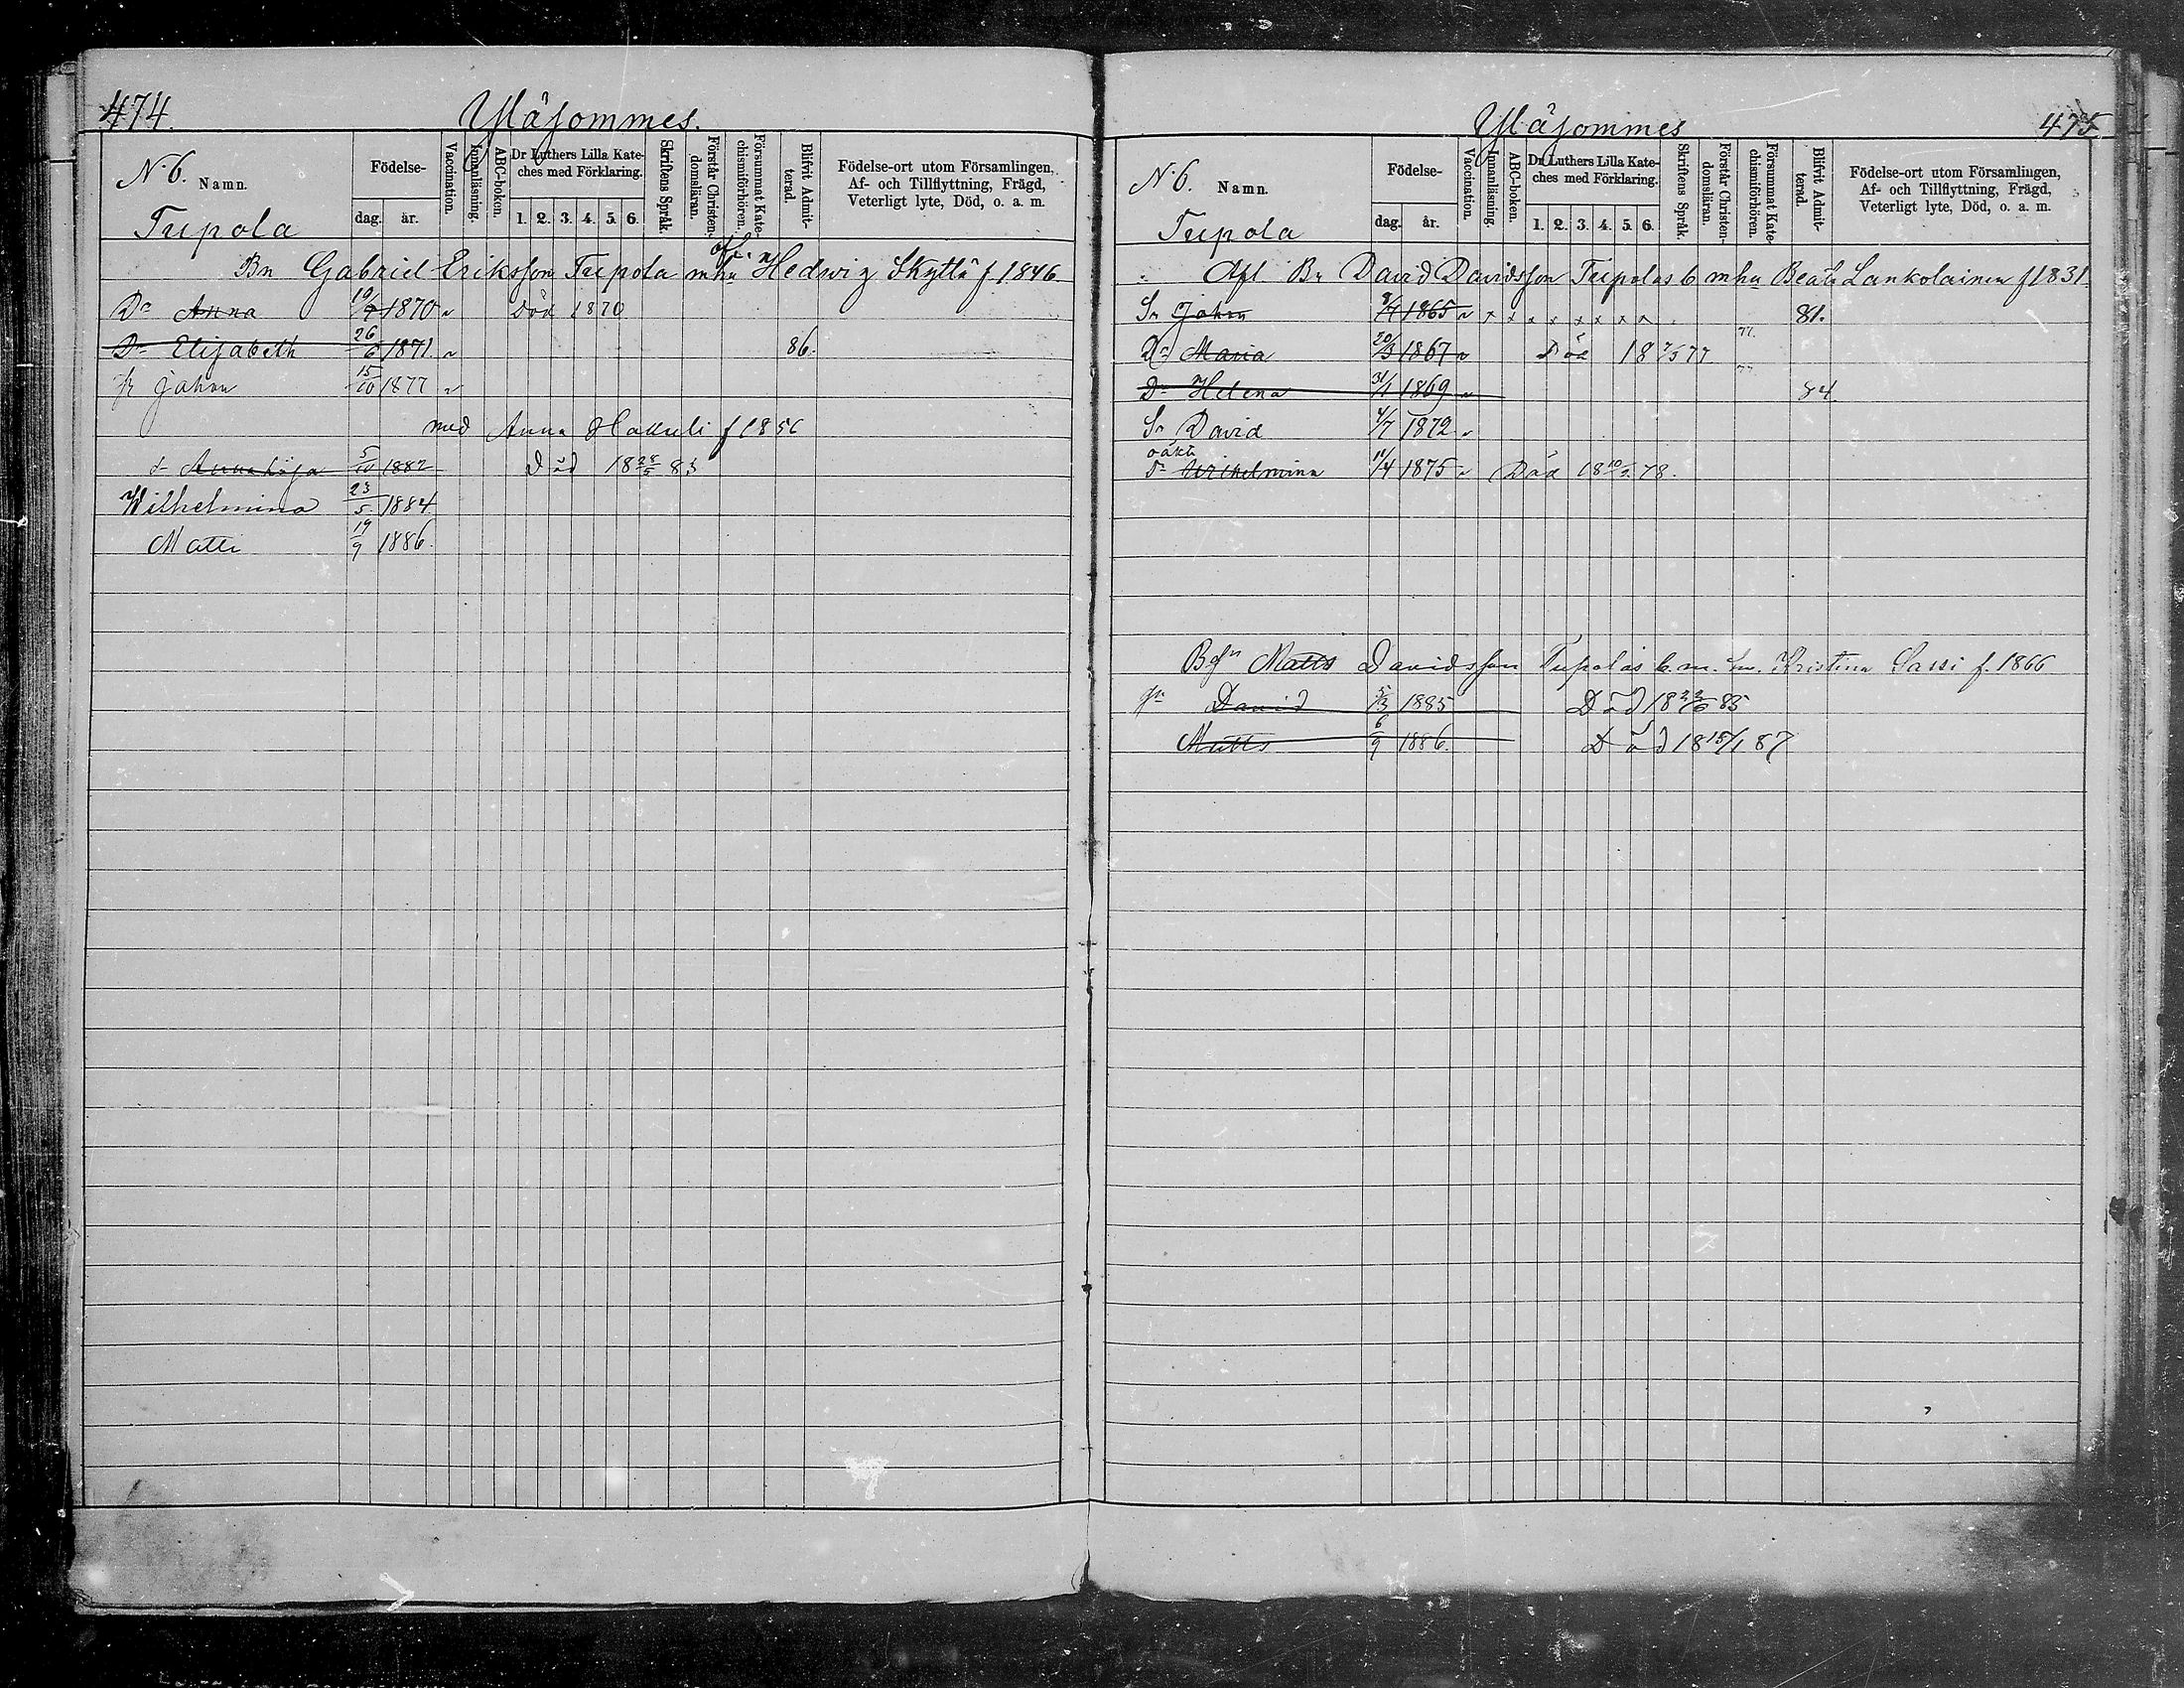 474. Yläsommes.
N:6. Namn. Födelse- dag. år. Vaccination. Innanläsning. ABC-boken. Dr Luthers Lilla Kateches med Förklaring. 1. 2. 3. 4. 5. 6. Skriftens Språk. Förstår Christendomsläran. Försummat Katechismiförhören. Blifvit Admitterad. Födelse-ort utom Församlingen, Af- och Tillflyttning, Frägd, Veterligt lyte, Död, o. a. m.
Tupola
Bn Gabriel Eriksson Tupola m hu Hedwig Skyttä f. 1846
Dr Anna 19/7 1870 Död 1870
Dr Elisabeth 26/6 1871. 86.
Sr Johan 15/10 1877
med Anna Hakuli f 1856
dr 5/10 1882 Död 18 28/5 83
Wilhelmina 23/5 1884
Matti 19/9 1886.
Yläsommes 475
N:6. Namn. Födelse- dag. år. Vaccination. Innanläsning. ABC-boken. Dr Luthers Lilla Kateches med Förklaring. 1. 2. 3. 4. 5. 6. Skriftens Språk. Förstår Christendomsläran. Försummat Katechismiförhören. Blifvit Admitterad. Födelse-ort utom Församlingen, Af- och Tillflyttning, Frägd, Veterligt lyte, Död, o. a. m.
Tupola
Afl. Br David Davidsson Tupolas b m hu Beata Lankolainen f 1831.
Sr Johan 1865 x x x x x x x x 81.
Dr Maria 20/3 1867 Död 18 7/5 77 77.
Dr Helena 31/1 1869 77 84.
Sr David 4/7 1872
oäkta
dr Wilhelmina 11/4 1875 Död 18 78.
Matts Davidsson Tupolas b. m. hu. Kristina Sassi f. 1866
David 5/3 1885 Död 18 22/6 85
Matts 6/9 1886. Död 18 15/1 87